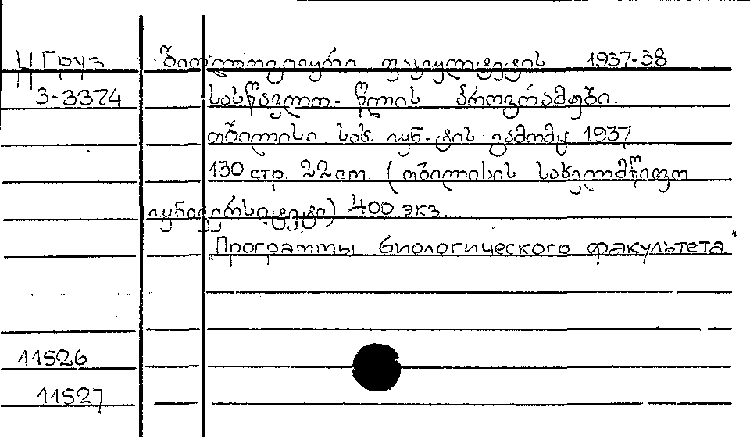 Груз ბიოლოგიური ფაკულტეტის 1937-38
3-3374 სასწავლო-წლის პროგრამები.
თბილისი. სახ. უნ-ტის გამომც. 1937
130 стр. 22 cm. (თბილისის სახელმწიფო
უნივერსიტეტი) 400 экз.
"Программы биологического факультета"
11526
11527